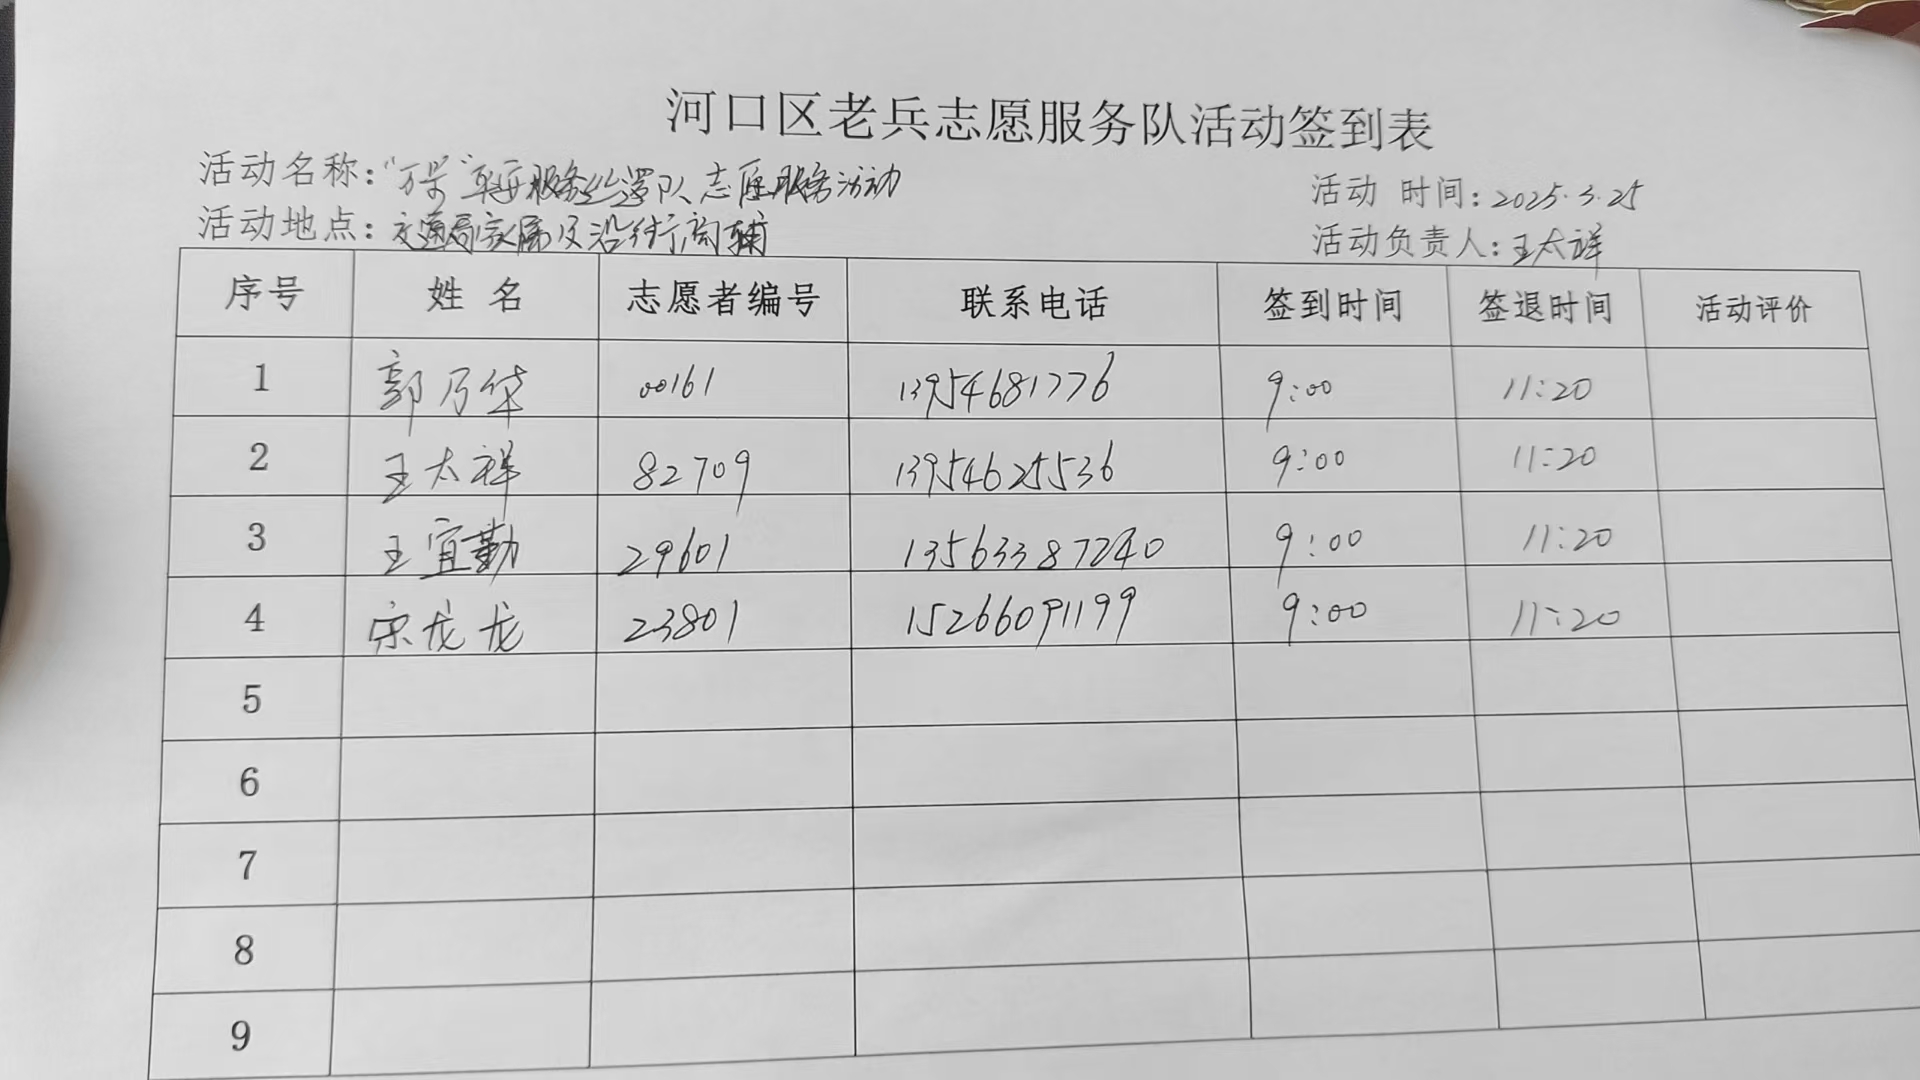 河口区老兵志愿服务队活动签到表
活动名称：志愿服务活动
活动时间：2025.3.25
活动地点：交通局家属区沿街商铺
活动负责人：王太祥
序号 姓名 志愿者编号 联系电话 签到时间 签退时间 活动评价
1 郭乃华 00161 13954681776 9:00 11:20
2 王太祥 82709 13954625536 9:00 11:20
3 王宜勤 29601 13563387240 9:00 11:20
4 宋龙龙 23801 15266091199 9:00 11:20
5
6
7
8
9